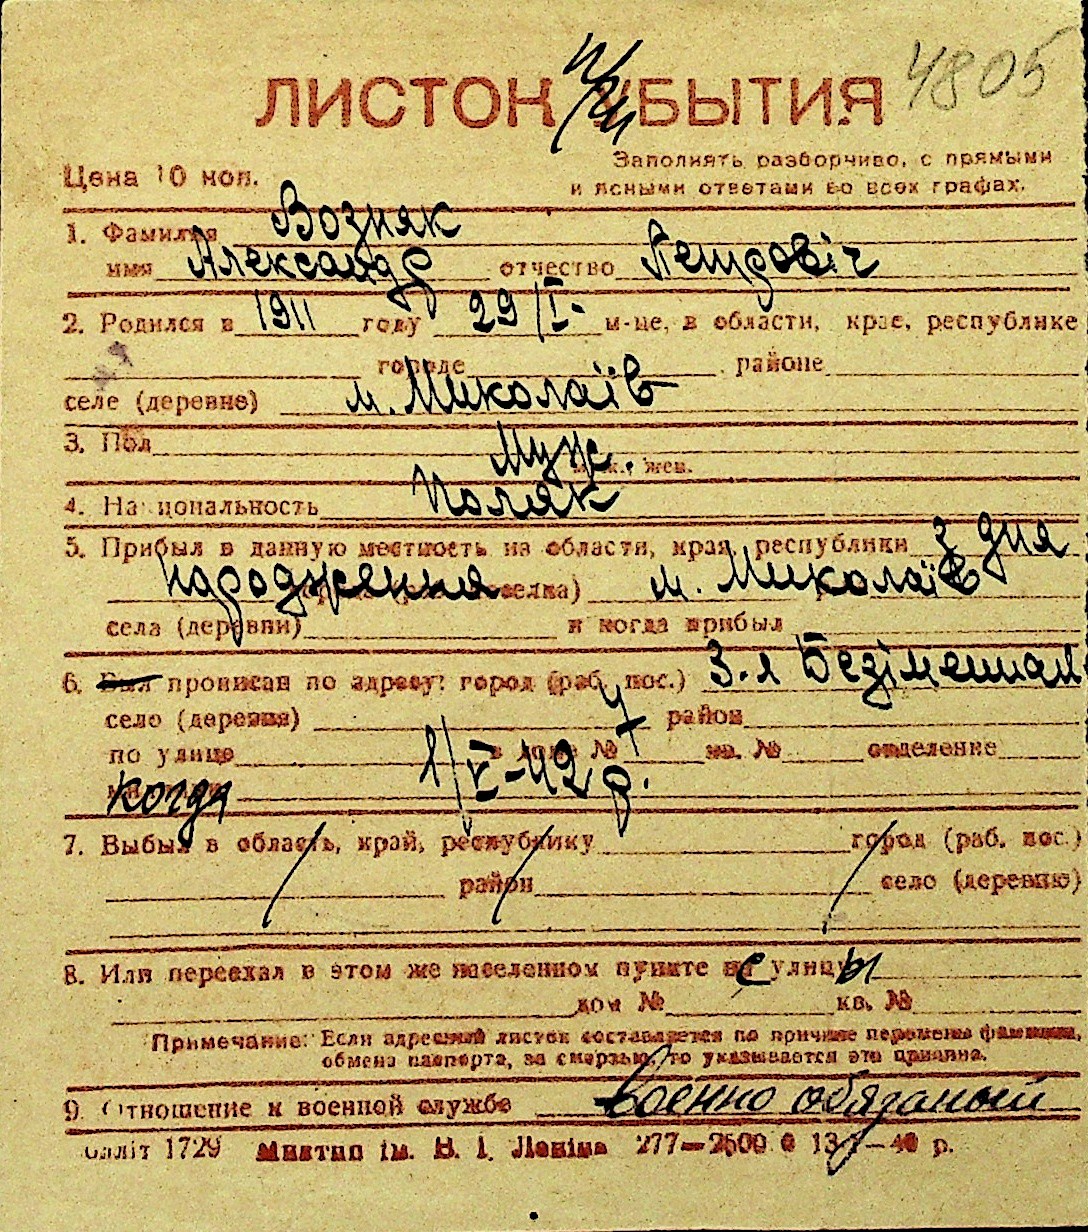 4805
ЛИСТОК при УБЫТИЯ
Цена 10 коп.
Заполнять разборчиво, с прямыми
и ясными ответами во всех графах.
1. Фамилия Возняк
имя Александр отчество Петровіч
2. Родился в 1911 году 29/I- м-це, в области, крае, республике
городе районе
селе (деревне) м. Миколаїв
3. Пол Муж. жен.
4. Национальность Поляк
5. Прибыл в данную местность из области, края, республики з дня
народження м. Миколаїв
села (деревни) и когда прибыл
6. Был прописан по адресу: город (раб. пос.) 3-я Безіменная
село (деревня) 4 район
по улице в доме № кв. № отделение
когда 1/V-42 р.
7. Выбыл в область, край, республику город (раб. пос.)
район село (деревню)
8. Или переехал в этом же населенном пункте с улицы
дом № кв. №
Примечание: Если адресный листок составляется по причине перемены фамилии,
обмена паспорта, за смертью, то указывается эта причина.
9. Отношение к военной службе военно обязаный
1729 Миктип ім. В. І. Леніна 277—2500 р.